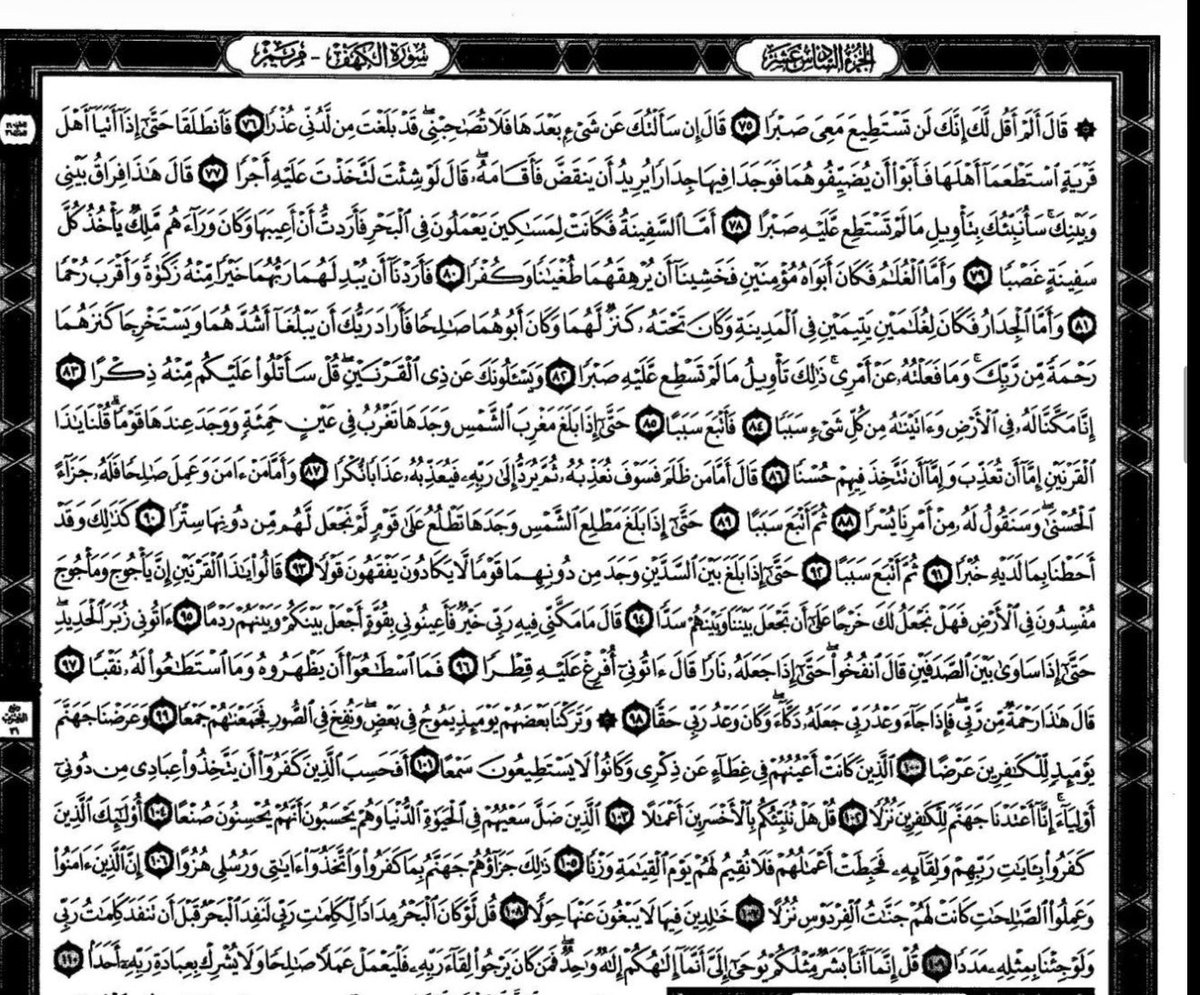 الجزء السادس عشر
سورة الكهف - مريم
۞ قَالَ أَلَمْ أَقُل لَّكَ إِنَّكَ لَن تَسْتَطِيعَ مَعِيَ صَبْرًا ٧٥ قَالَ إِن سَأَلْتُكَ عَن شَيْءٍ بَعْدَهَا فَلَا تُصَٰحِبْنِي ۖ قَدْ بَلَغْتَ مِن لَّدُنِّي عُذْرًا ٧٦ فَٱنطَلَقَا حَتَّىٰٓ إِذَآ أَتَيَآ أَهْلَ
قَرْيَةٍ ٱسْتَطْعَمَآ أَهْلَهَا فَأَبَوْا۟ أَن يُضَيِّفُوهُمَا فَوَجَدَا فِيهَا جِدَارًا يُرِيدُ أَن يَنقَضَّ فَأَقَامَهُۥ ۖ قَالَ لَوْ شِئْتَ لَتَّخَذْتَ عَلَيْهِ أَجْرًا ٧٧ قَالَ هَٰذَا فِرَاقُ بَيْنِي
وَبَيْنِكَ ۚ سَأُنَبِّئُكَ بِتَأْوِيلِ مَا لَمْ تَسْتَطِع عَّلَيْهِ صَبْرًا ٧٨ أَمَّا ٱلسَّفِينَةُ فَكَانَتْ لِمَسَٰكِينَ يَعْمَلُونَ فِي ٱلْبَحْرِ فَأَرَدتُّ أَنْ أَعِيبَهَا وَكَانَ وَرَآءَهُم مَّلِكٌ يَأْخُذُ كُلَّ
سَفِينَةٍ غَصْبًا ٧٩ وَأَمَّا ٱلْغُلَٰمُ فَكَانَ أَبَوَاهُ مُؤْمِنَيْنِ فَخَشِينَآ أَن يُرْهِقَهُمَا طُغْيَٰنًا وَكُفْرًا ٨٠ فَأَرَدْنَآ أَن يُبْدِلَهُمَا رَبُّهُمَا خَيْرًا مِّنْهُ زَكَوٰةً وَأَقْرَبَ رُحْمًا
٨١ وَأَمَّا ٱلْجِدَارُ فَكَانَ لِغُلَٰمَيْنِ يَتِيمَيْنِ فِي ٱلْمَدِينَةِ وَكَانَ تَحْتَهُۥ كَنزٌ لَّهُمَا وَكَانَ أَبُوهُمَا صَٰلِحًا فَأَرَادَ رَبُّكَ أَن يَبْلُغَآ أَشُدَّهُمَا وَيَسْتَخْرِجَا كَنزَهُمَا
رَحْمَةً مِّن رَّبِّكَ ۚ وَمَا فَعَلْتُهُۥ عَنْ أَمْرِي ۚ ذَٰلِكَ تَأْوِيلُ مَا لَمْ تَسْطِع عَّلَيْهِ صَبْرًا ٨٢ وَيَسْـَٔلُونَكَ عَن ذِي ٱلْقَرْنَيْنِ ۖ قُلْ سَأَتْلُوا۟ عَلَيْكُم مِّنْهُ ذِكْرًا ٨٣
إِنَّا مَكَّنَّا لَهُۥ فِي ٱلْأَرْضِ وَءَاتَيْنَٰهُ مِن كُلِّ شَيْءٍ سَبَبًا ٨٤ فَأَتْبَعَ سَبَبًا ٨٥ حَتَّىٰٓ إِذَا بَلَغَ مَغْرِبَ ٱلشَّمْسِ وَجَدَهَا تَغْرُبُ فِي عَيْنٍ حَمِئَةٍ وَوَجَدَ عِندَهَا قَوْمًا ۗ قُلْنَا يَٰذَا
ٱلْقَرْنَيْنِ إِمَّآ أَن تُعَذِّبَ وَإِمَّآ أَن تَتَّخِذَ فِيهِمْ حُسْنًا ٨٦ قَالَ أَمَّا مَن ظَلَمَ فَسَوْفَ نُعَذِّبُهُۥ ثُمَّ يُرَدُّ إِلَىٰ رَبِّهِۦ فَيُعَذِّبُهُۥ عَذَابًا نُّكْرًا ٨٧ وَأَمَّا مَنْ ءَامَنَ وَعَمِلَ صَٰلِحًا فَلَهُۥ جَزَآءً
ٱلْحُسْنَىٰ ۖ وَسَنَقُولُ لَهُۥ مِنْ أَمْرِنَا يُسْرًا ٨٨ ثُمَّ أَتْبَعَ سَبَبًا ٨٩ حَتَّىٰٓ إِذَا بَلَغَ مَطْلِعَ ٱلشَّمْسِ وَجَدَهَا تَطْلُعُ عَلَىٰ قَوْمٍ لَّمْ نَجْعَل لَّهُم مِّن دُونِهَا سِتْرًا ٩٠ كَذَٰلِكَ وَقَدْ
أَحَطْنَا بِمَا لَدَيْهِ خُبْرًا ٩١ ثُمَّ أَتْبَعَ سَبَبًا ٩٢ حَتَّىٰٓ إِذَا بَلَغَ بَيْنَ ٱلسَّدَّيْنِ وَجَدَ مِن دُونِهِمَا قَوْمًا لَّا يَكَادُونَ يَفْقَهُونَ قَوْلًا ٩٣ قَالُوا۟ يَٰذَا ٱلْقَرْنَيْنِ إِنَّ يَأْجُوجَ وَمَأْجُوجَ
مُفْسِدُونَ فِي ٱلْأَرْضِ فَهَلْ نَجْعَلُ لَكَ خَرْجًا عَلَىٰٓ أَن تَجْعَلَ بَيْنَنَا وَبَيْنَهُمْ سَدًّا ٩٤ قَالَ مَا مَكَّنِّي فِيهِ رَبِّي خَيْرٌ فَأَعِينُونِي بِقُوَّةٍ أَجْعَلْ بَيْنَكُمْ وَبَيْنَهُمْ رَدْمًا ٩٥ ءَاتُونِي زُبَرَ ٱلْحَدِيدِ ۖ
حَتَّىٰٓ إِذَا سَاوَىٰ بَيْنَ ٱلصَّدَفَيْنِ قَالَ ٱنفُخُوا۟ ۖ حَتَّىٰٓ إِذَا جَعَلَهُۥ نَارًا قَالَ ءَاتُونِيٓ أُفْرِغْ عَلَيْهِ قِطْرًا ٩٦ فَمَا ٱسْطَٰعُوٓا۟ أَن يَظْهَرُوهُ وَمَا ٱسْتَطَٰعُوا۟ لَهُۥ نَقْبًا ٩٧
قَالَ هَٰذَا رَحْمَةٌ مِّن رَّبِّي ۖ فَإِذَا جَآءَ وَعْدُ رَبِّي جَعَلَهُۥ دَكَّآءَ ۖ وَكَانَ وَعْدُ رَبِّي حَقًّا ٩٨ ۞ وَتَرَكْنَا بَعْضَهُمْ يَوْمَئِذٍ يَمُوجُ فِي بَعْضٍ ۖ وَنُفِخَ فِي ٱلصُّورِ فَجَمَعْنَٰهُمْ جَمْعًا ٩٩ وَعَرَضْنَا جَهَنَّمَ
يَوْمَئِذٍ لِّلْكَٰفِرِينَ عَرْضًا ١٠٠ ٱلَّذِينَ كَانَتْ أَعْيُنُهُمْ فِي غِطَآءٍ عَن ذِكْرِي وَكَانُوا۟ لَا يَسْتَطِيعُونَ سَمْعًا ١٠١ أَفَحَسِبَ ٱلَّذِينَ كَفَرُوٓا۟ أَن يَتَّخِذُوا۟ عِبَادِي مِن دُونِيٓ
أَوْلِيَآءَ ۚ إِنَّآ أَعْتَدْنَا جَهَنَّمَ لِلْكَٰفِرِينَ نُزُلًا ١٠٢ قُلْ هَلْ نُنَبِّئُكُم بِٱلْأَخْسَرِينَ أَعْمَٰلًا ١٠٣ ٱلَّذِينَ ضَلَّ سَعْيُهُمْ فِي ٱلْحَيَوٰةِ ٱلدُّنْيَا وَهُمْ يَحْسَبُونَ أَنَّهُمْ يُحْسِنُونَ صُنْعًا ١٠٤ أُو۟لَٰٓئِكَ ٱلَّذِينَ
كَفَرُوا۟ بِـَٔايَٰتِ رَبِّهِمْ وَلِقَآئِهِۦ فَحَبِطَتْ أَعْمَٰلُهُمْ فَلَا نُقِيمُ لَهُمْ يَوْمَ ٱلْقِيَٰمَةِ وَزْنًا ١٠٥ ذَٰلِكَ جَزَآؤُهُمْ جَهَنَّمُ بِمَا كَفَرُوا۟ وَٱتَّخَذُوٓا۟ ءَايَٰتِي وَرُسُلِي هُزُوًا ١٠٦ إِنَّ ٱلَّذِينَ ءَامَنُوا۟
وَعَمِلُوا۟ ٱلصَّٰلِحَٰتِ كَانَتْ لَهُمْ جَنَّٰتُ ٱلْفِرْدَوْسِ نُزُلًا ١٠٧ خَٰلِدِينَ فِيهَا لَا يَبْغُونَ عَنْهَا حِوَلًا ١٠٨ قُل لَّوْ كَانَ ٱلْبَحْرُ مِدَادًا لِّكَلِمَٰتِ رَبِّي لَنَفِدَ ٱلْبَحْرُ قَبْلَ أَن تَنفَدَ كَلِمَٰتُ رَبِّي
وَلَوْ جِئْنَا بِمِثْلِهِۦ مَدَدًا ١٠٩ قُلْ إِنَّمَآ أَنَا۠ بَشَرٌ مِّثْلُكُمْ يُوحَىٰٓ إِلَيَّ أَنَّمَآ إِلَٰهُكُمْ إِلَٰهٌ وَٰحِدٌ ۖ فَمَن كَانَ يَرْجُوا۟ لِقَآءَ رَبِّهِۦ فَلْيَعْمَلْ عَمَلًا صَٰلِحًا وَلَا يُشْرِكْ بِعِبَادَةِ رَبِّهِۦٓ أَحَدًۢا ١١٠